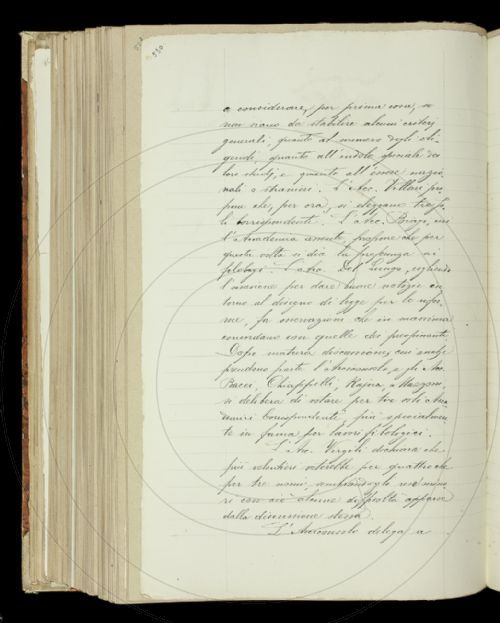 530
a considerare, per prima cosa, se
non siano da stabilire alcuni criterj
generali, quanto al numero degli eli-
gendi, quanto all'indole speciale dei
loro studj, e quanto all'essere nazio-
nali o stranieri. L'Acc. Villari pro-
pone che, per ora, si eleggano tre so-
li corrispondenti. L'Acc.
l'Accademia consente, propone che per
questa volta si dia la preferenza ai
filologi. L'Acc. Del Lungo, cogliendo
l'occasione per dare buone notizie in-
torno al disegno di legge per le
fa osservazioni che in massima
concordano con quelle dei preopinanti.
Dopo matura discussione, cui anche
prendono parte l'Arciconsolo, e gli Acc.
Bacci, Chiappelli, Rajna, e Mazzoni,
si delibera di votare per tre soli Acca-
demici Corrispondenti più specialmen-
te in fama per lavori filologici.
L'Acc. Vergili dichiara che
più volentieri voterebbe per quattro che
per tre nomi,
con ciò alcune difficoltà apparse
dalla discussione stessa.
L'Arciconsolo delega a